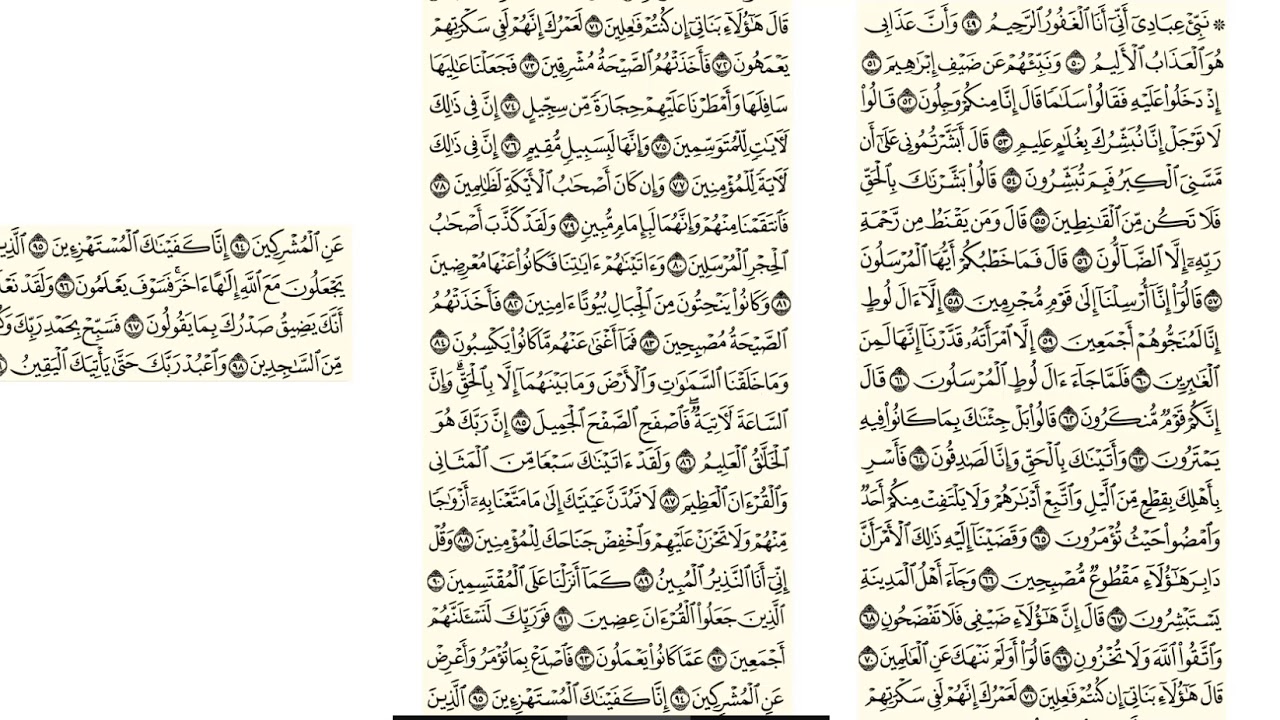 ۞ نَبِّئْ عِبَادِىٓ أَنِّىٓ أَنَا ٱلْغَفُورُ ٱلرَّحِيمُ ٤٩ وَأَنَّ عَذَابِى
هُوَ ٱلْعَذَابُ ٱلْأَلِيمُ ٥٠ وَنَبِّئْهُمْ عَن ضَيْفِ إِبْرَٰهِيمَ ٥١
إِذْ دَخَلُوا۟ عَلَيْهِ فَقَالُوا۟ سَلَٰمًا قَالَ إِنَّا مِنكُمْ وَجِلُونَ ٥٢ قَالُوا۟
لَا تَوْجَلْ إِنَّا نُبَشِّرُكَ بِغُلَٰمٍ عَلِيمٍ ٥٣ قَالَ أَبَشَّرْتُمُونِى عَلَىٰٓ أَن
مَّسَّنِىَ ٱلْكِبَرُ فَبِمَ تُبَشِّرُونَ ٥٤ قَالُوا۟ بَشَّرْنَٰكَ بِٱلْحَقِّ
فَلَا تَكُن مِّنَ ٱلْقَٰنِطِينَ ٥٥ قَالَ وَمَن يَقْنَطُ مِن رَّحْمَةِ
رَبِّهِۦٓ إِلَّا ٱلضَّآلُّونَ ٥٦ قَالَ فَمَا خَطْبُكُمْ أَيُّهَا ٱلْمُرْسَلُونَ
٥٧ قَالُوٓا۟ إِنَّآ أُرْسِلْنَآ إِلَىٰ قَوْمٍ مُّجْرِمِينَ ٥٨ إِلَّآ ءَالَ لُوطٍ
إِنَّا لَمُنَجُّوهُمْ أَجْمَعِينَ ٥٩ إِلَّا ٱمْرَأَتَهُۥ قَدَّرْنَآ إِنَّهَا لَمِنَ
ٱلْغَٰبِرِينَ ٦٠ فَلَمَّا جَآءَ ءَالَ لُوطٍ ٱلْمُرْسَلُونَ ٦١ قَالَ
إِنَّكُمْ قَوْمٌ مُّنكَرُونَ ٦٢ قَالُوا۟ بَلْ جِئْنَٰكَ بِمَا كَانُوا۟ فِيهِ
يَمْتَرُونَ ٦٣ وَأَتَيْنَٰكَ بِٱلْحَقِّ وَإِنَّا لَصَٰدِقُونَ ٦٤ فَأَسْرِ
بِأَهْلِكَ بِقِطْعٍ مِّنَ ٱلَّيْلِ وَٱتَّبِعْ أَدْبَٰرَهُمْ وَلَا يَلْتَفِتْ مِنكُمْ أَحَدٌ
وَٱمْضُوا۟ حَيْثُ تُؤْمَرُونَ ٦٥ وَقَضَيْنَآ إِلَيْهِ ذَٰلِكَ ٱلْأَمْرَ أَنَّ
دَابِرَ هَٰٓؤُلَآءِ مَقْطُوعٌ مُّصْبِحِينَ ٦٦ وَجَآءَ أَهْلُ ٱلْمَدِينَةِ
يَسْتَبْشِرُونَ ٦٧ قَالَ إِنَّ هَٰٓؤُلَآءِ ضَيْفِى فَلَا تَفْضَحُونِ ٦٨
وَٱتَّقُوا۟ ٱللَّهَ وَلَا تُخْزُونِ ٦٩ قَالُوٓا۟ أَوَلَمْ نَنْهَكَ عَنِ ٱلْعَٰلَمِينَ ٧٠
قَالَ هَٰٓؤُلَآءِ بَنَاتِىٓ إِن كُنتُمْ فَٰعِلِينَ ٧١ لَعَمْرُكَ إِنَّهُمْ لَفِى سَكْرَتِهِمْ
قَالَ هَٰٓؤُلَآءِ بَنَاتِىٓ إِن كُنتُمْ فَٰعِلِينَ ٧١ لَعَمْرُكَ إِنَّهُمْ لَفِى سَكْرَتِهِمْ
يَعْمَهُونَ ٧٢ فَأَخَذَتْهُمُ ٱلصَّيْحَةُ مُشْرِقِينَ ٧٣ فَجَعَلْنَا عَٰلِيَهَا
سَافِلَهَا وَأَمْطَرْنَا عَلَيْهِمْ حِجَارَةً مِّن سِجِّيلٍ ٧٤ إِنَّ فِى ذَٰلِكَ
لَءَايَٰتٍ لِّلْمُتَوَسِّمِينَ ٧٥ وَإِنَّهَا لَبِسَبِيلٍ مُّقِيمٍ ٧٦ إِنَّ فِى ذَٰلِكَ
لَءَايَةً لِّلْمُؤْمِنِينَ ٧٧ وَإِن كَانَ أَصْحَٰبُ ٱلْأَيْكَةِ لَظَٰلِمِينَ ٧٨
فَٱنتَقَمْنَا مِنْهُمْ وَإِنَّهُمَا لَبِإِمَامٍ مُّبِينٍ ٧٩ وَلَقَدْ كَذَّبَ أَصْحَٰبُ
ٱلْحِجْرِ ٱلْمُرْسَلِينَ ٨٠ وَءَاتَيْنَٰهُمْ ءَايَٰتِنَا فَكَانُوا۟ عَنْهَا مُعْرِضِينَ
٨١ وَكَانُوا۟ يَنْحِتُونَ مِنَ ٱلْجِبَالِ بُيُوتًا ءَامِنِينَ ٨٢ فَأَخَذَتْهُمُ
ٱلصَّيْحَةُ مُصْبِحِينَ ٨٣ فَمَآ أَغْنَىٰ عَنْهُم مَّا كَانُوا۟ يَكْسِبُونَ ٨٤
وَمَا خَلَقْنَا ٱلسَّمَٰوَٰتِ وَٱلْأَرْضَ وَمَا بَيْنَهُمَآ إِلَّا بِٱلْحَقِّ ۗ وَإِنَّ
ٱلسَّاعَةَ لَءَاتِيَةٌ ۖ فَٱصْفَحِ ٱلصَّفْحَ ٱلْجَمِيلَ ٨٥ إِنَّ رَبَّكَ هُوَ
ٱلْخَلَّٰقُ ٱلْعَلِيمُ ٨٦ وَلَقَدْ ءَاتَيْنَٰكَ سَبْعًا مِّنَ ٱلْمَثَانِى
وَٱلْقُرْءَانَ ٱلْعَظِيمَ ٨٧ لَا تَمُدَّنَّ عَيْنَيْكَ إِلَىٰ مَا مَتَّعْنَا بِهِۦٓ أَزْوَٰجًا
مِّنْهُمْ وَلَا تَحْزَنْ عَلَيْهِمْ وَٱخْفِضْ جَنَاحَكَ لِلْمُؤْمِنِينَ ٨٨ وَقُلْ
إِنِّىٓ أَنَا ٱلنَّذِيرُ ٱلْمُبِينُ ٨٩ كَمَآ أَنزَلْنَا عَلَى ٱلْمُقْتَسِمِينَ ٩٠
ٱلَّذِينَ جَعَلُوا۟ ٱلْقُرْءَانَ عِضِينَ ٩١ فَوَرَبِّكَ لَنَسْـَٔلَنَّهُمْ
أَجْمَعِينَ ٩٢ عَمَّا كَانُوا۟ يَعْمَلُونَ ٩٣ فَٱصْدَعْ بِمَا تُؤْمَرُ وَأَعْرِضْ
عَنِ ٱلْمُشْرِكِينَ ٩٤ إِنَّا كَفَيْنَٰكَ ٱلْمُسْتَهْزِءِينَ ٩٥ ٱلَّذِينَ
عَنِ ٱلْمُشْرِكِينَ ٩٤ إِنَّا كَفَيْنَٰكَ ٱلْمُسْتَهْزِءِينَ ٩٥
يَجْعَلُونَ مَعَ ٱللَّهِ إِلَٰهًا ءَاخَرَ ۚ فَسَوْفَ يَعْلَمُونَ ٩٦ وَلَقَدْ
أَنَّكَ يَضِيقُ صَدْرُكَ بِمَا يَقُولُونَ ٩٧ فَسَبِّحْ بِحَمْدِ رَبِّكَ
مِّنَ ٱلسَّٰجِدِينَ ٩٨ وَٱعْبُدْ رَبَّكَ حَتَّىٰ يَأْتِيَكَ ٱلْيَقِينُ